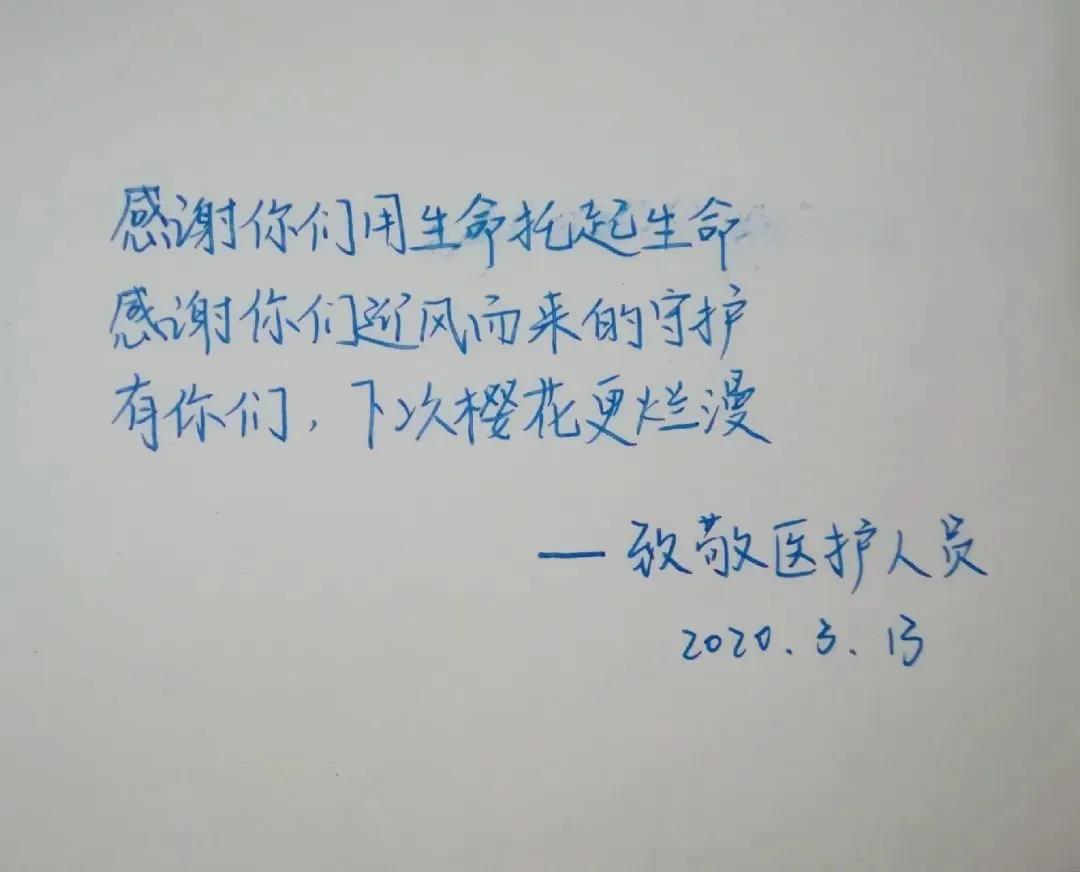 感谢你们用生命托起生命
感谢你们逆风而来的守护
有你们，下次樱花更烂漫
— 致敬医护人员
2020.3.13